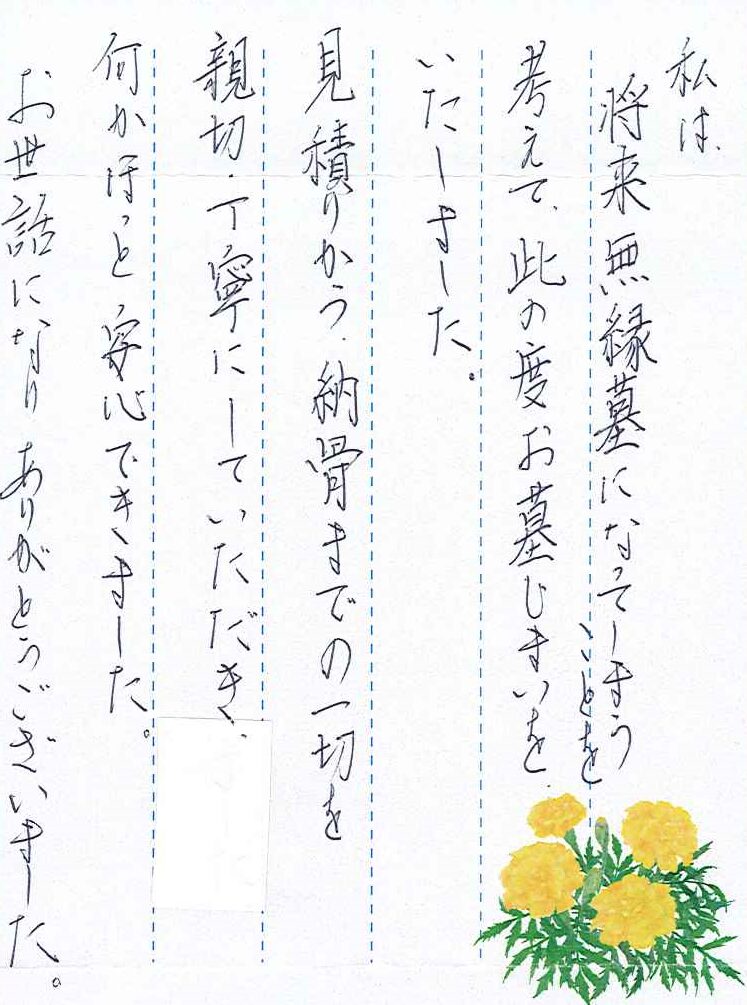 私は、
将来無縁墓になってしまう
ことを
考えて、此の度お墓じまいを
いたしました。
見積りから、納骨までの一切を
親切・丁寧にしていただき、
何かほっと安心できました。
お世話になりありがとうございました。